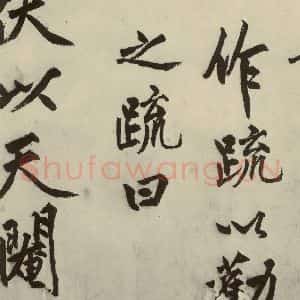 作疏以勸
之疏曰
伏以天閹
Shufawang.CN